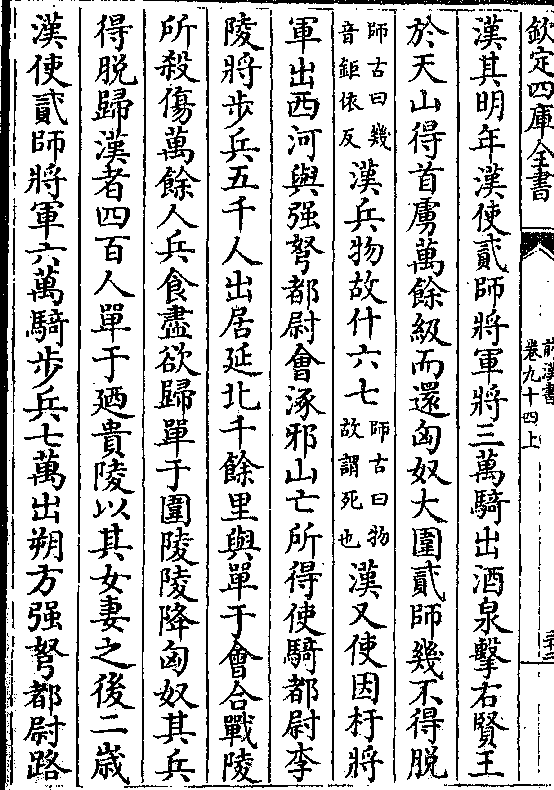 欽定四庫全書
前漢書
卷九十四上
漢其明年漢使貳師將軍將三萬騎出酒泉擊右賢王
於天山得首虜萬餘級而還匈奴大圍貳師幾不得脫
師古曰幾
音鉅依反
漢兵物故什六七
師古曰物
故謂死也
漢又使因杅將
軍出西河與强弩都尉會涿邪山亡所得使騎都尉李
陵將步兵五千人出居延北千餘里與單于會合戰陵
所殺傷萬餘人兵食盡欲歸單于圍陵陵降匈奴其兵
得脫歸漢者四百人單于廼貴陵以其女妻之後二歲
漢使貳師將軍六萬騎步兵七萬出朔方强弩都尉路